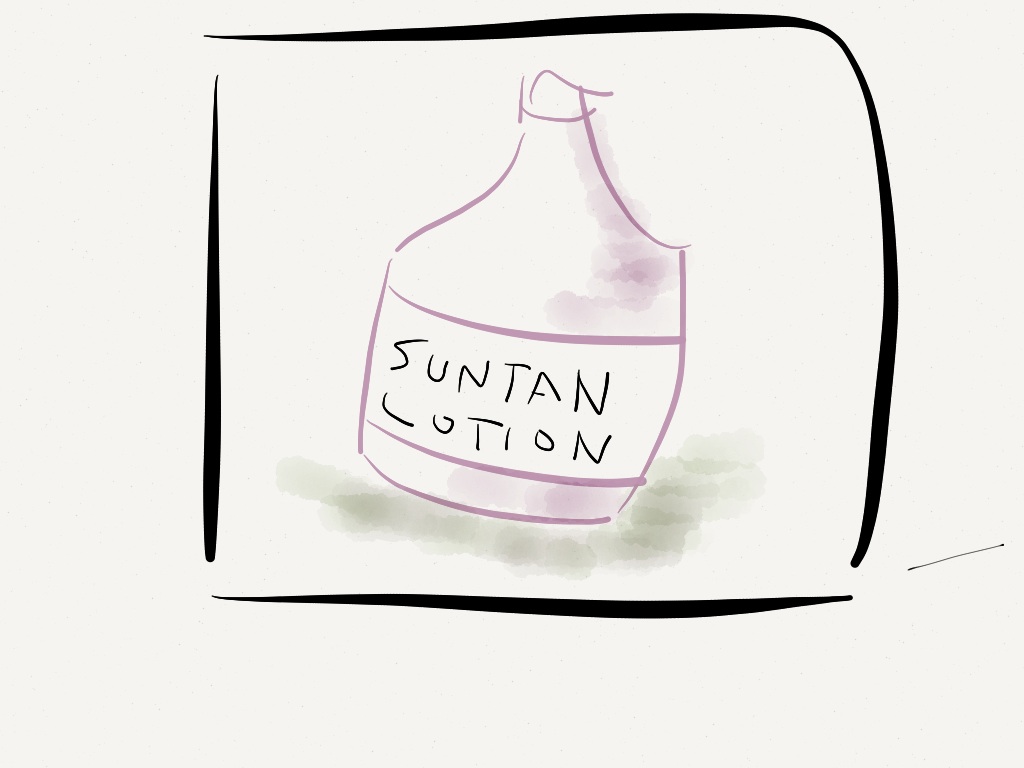 SUNTAN
LOTION